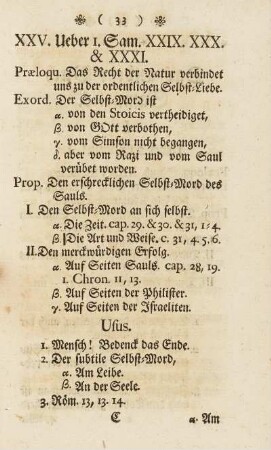 ❧ ( 33 ) ❧
XXV. Ueber 1. Sam. XXIX. XXX.
& XXXI.
Præloqu. Das Recht der Natur verbindet
uns zu der ordentlichen Selbst-Liebe.
Exord. Der Selbst-Mord ist
α. von den Stoicis vertheidiget,
β. von GOtt verbothen,
γ. vom Simson nicht begangen,
δ. aber vom Razi und vom Saul
verübet worden.
Prop. Den erschrecklichen Selbst-Mord des
Sauls.
I. Den Selbst-Mord an sich selbst.
α. Die Zeit. cap. 29. & 30. & 31, 1-4.
β. Die Art und Weise. c. 31, 4. 5. 6.
II. Den merckwürdigen Erfolg.
α. Auf Seiten Sauls. cap. 28, 19.
1. Chron. 11, 13.
β. Auf Seiten der Philister.
γ. Auf Seiten der Israeliten.
Usus.
1. Mensch! Bedenck das Ende.
2. Der subtile Selbst-Mord,
α. Am Leibe.
β. An der Seele.
3. Röm. 13, 13. 14.
C α. Am